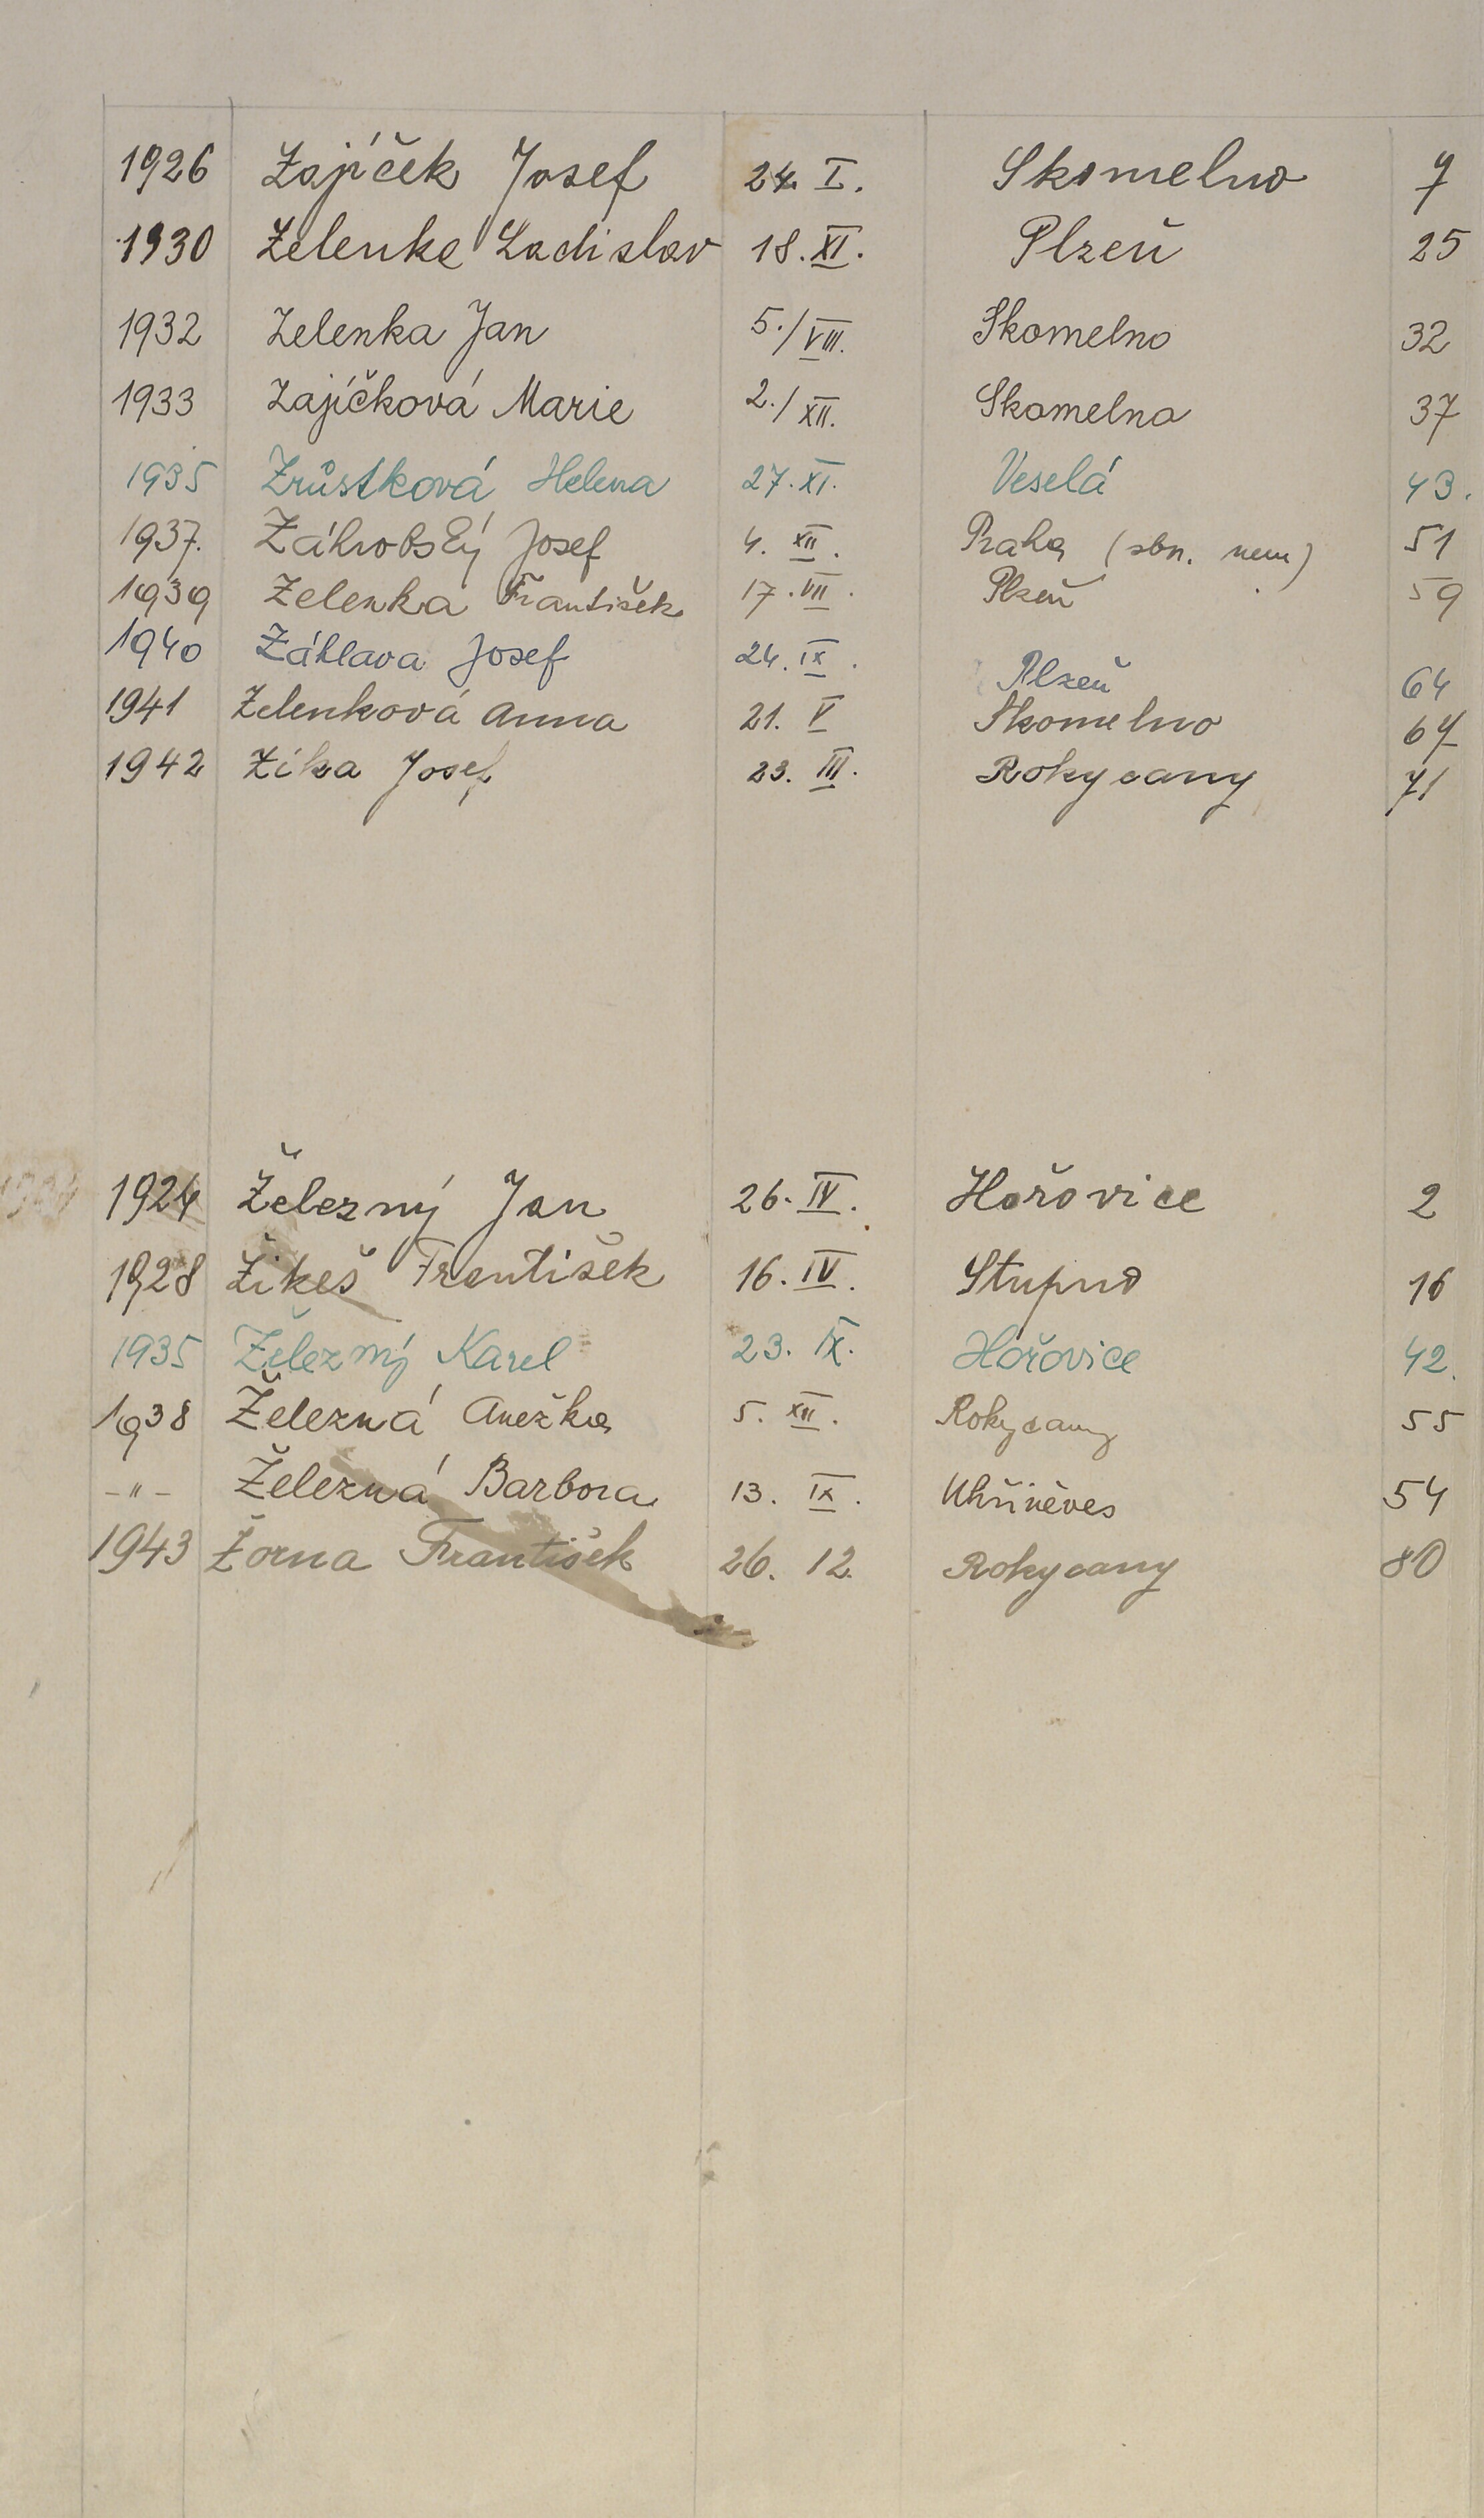 1926 Zajíček Josef 24. I. Skomelno 7
1930 Zelenka Ladislav 18. XI. Plzeň 25
1932 Zelenka Jan 5./VIII. Skomelno 32
1933 Zajíčková Marie 2./XII. Skomelno 37
1935 Zrůstková Helena 27. XI. Veselá 43.
1937. Záhrobský Josef 4. XII. Praha (sbn. nem) 51
1939 Zelenka František 17. VII. Plzeň 59
1940 Záhlava Josef 24. IX. Plzeň 64
1941 Zelenková Anna 21. V Skomelno 67
1942 Zíka Josef 23. III. Rokycany 71
1924 Železný Jan 26. IV. Hořovice 2
1928 Žikeš František 16. IV. Stupno 16
1935 Železný Karel 23. IX. Hořovice 42.
1938 Železná Anežka 5. XII. Rokycany 55
-"- Železná Barbora 13. IX. Uhříněves 54
1943 Žorna František 26. 12. Rokycany 80